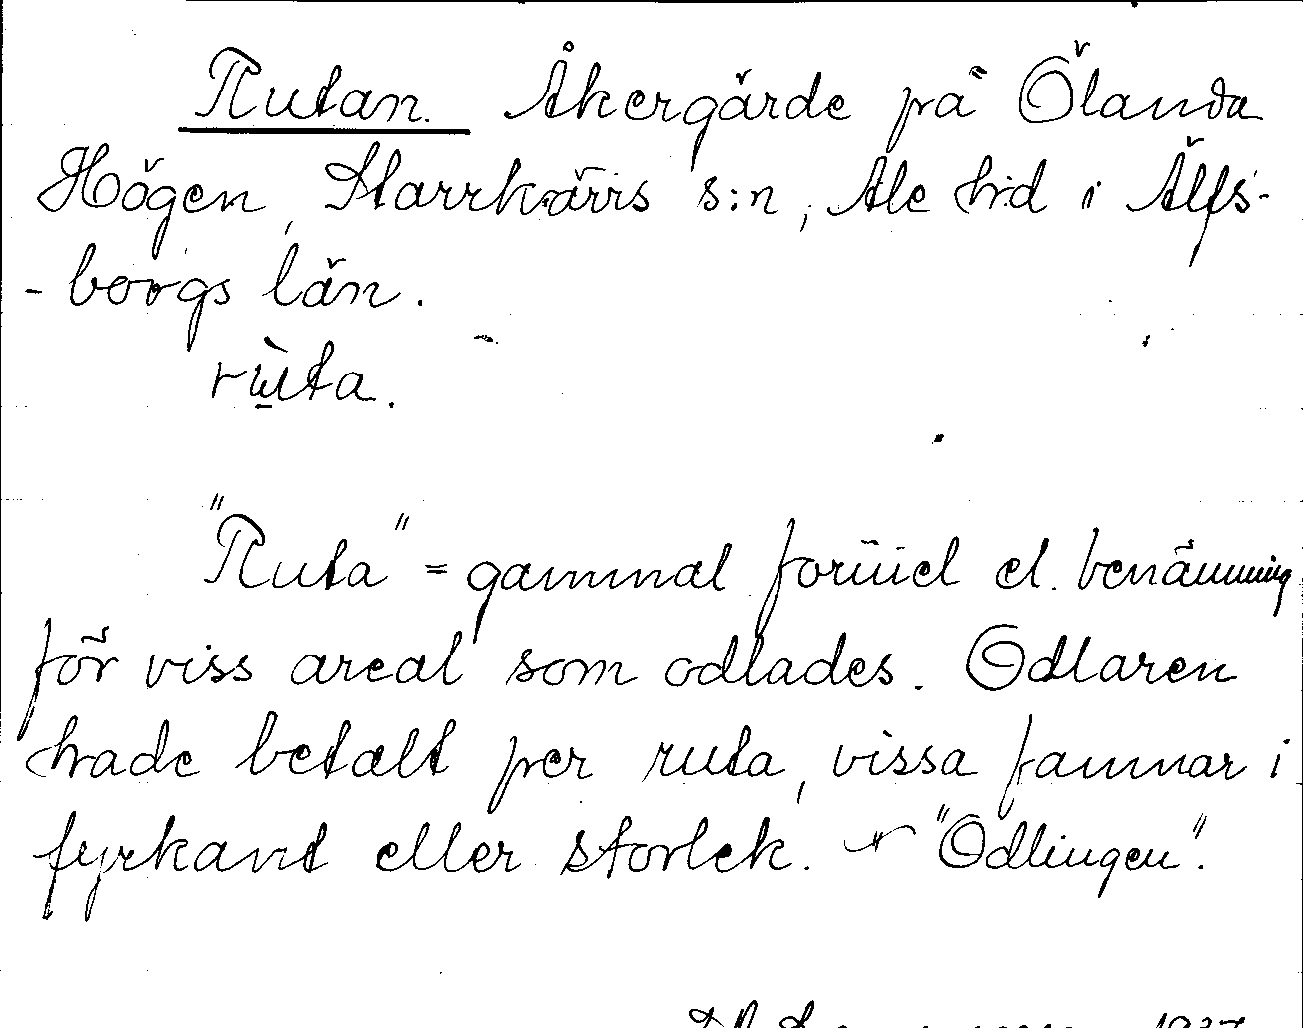 Rutan. Åkergärde på Ölanda
Högen, Starrkärrs s:n, Ale hd i Älfs-
- borgs län.
rùta.
"Ruta" = gammal forüiel el. benämning
för viss areal som odlades. Odlaren
hade betalt per ruta, vissa famnar i
fyrkant eller storlek. "Odlingen".
1937